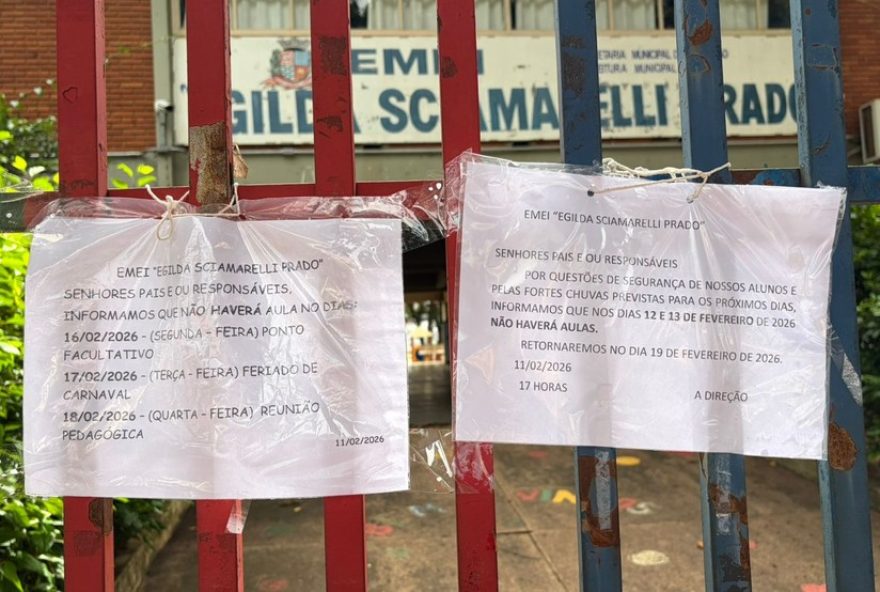 EMEI
SECRETARIA MUNICIPAL DE
PREFEITURA MUNICIPAL
"EGILDA SCIAMARELLI PRADO"
EMEI "EGILDA SCIAMARELLI PRADO"
SENHORES PAIS E OU RESPONSÁVEIS,
INFORMAMOS QUE NÃO HAVERÁ AULA NO DIAS:
16/02/2026 - (SEGUNDA - FEIRA) PONTO
FACULTATIVO
17/02/2026 - (TERÇA - FEIRA) FERIADO DE
CARNAVAL
18/02/2026 - (QUARTA - FEIRA) REUNIÃO
PEDAGÓGICA
11/02/2026
EMEI "EGILDA SCIAMARELLI PRADO"
SENHORES PAIS E OU RESPONSÁVEIS
POR QUESTÕES DE SEGURANÇA DE NOSSOS ALUNOS E
PELAS FORTES CHUVAS PREVISTAS PARA OS PRÓXIMOS DIAS,
INFORMAMOS QUE NOS DIAS 12 E 13 DE FEVEREIRO DE 2026
NÃO HAVERÁ AULAS.
RETORNAREMOS NO DIA 19 DE FEVEREIRO DE 2026.
11/02/2026
17 HORAS
A DIREÇÃO